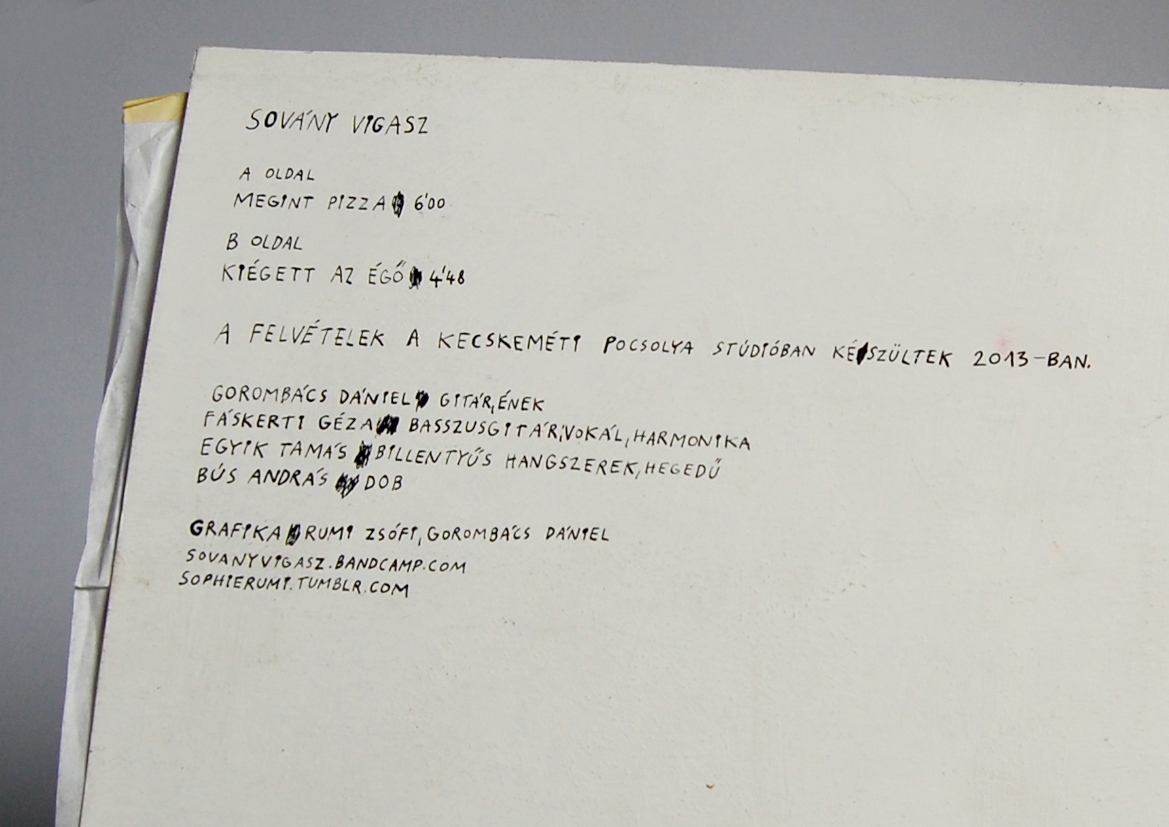 SOVÁNY VIGASZ
A OLDAL
MEGINT PIZZA 6'00
B OLDAL
KIÉGETT AZ ÉGŐ 4'48
A FELVÉTELEK A KECSKEMÉTI POCSOLYA STÚDIÓBAN KÉSZÜLTEK 2013-BAN.
GOROMBÁCS DÁNIEL GITÁR, ÉNEK
FÁSKERTI GÉZA BASSZUSGITÁR, VOKÁL, HARMONIKA
EGYIK TAMÁS BILLENTYŰS HANGSZEREK, HEGEDŰ
BÚS ANDRÁS DOB
GRAFIKA RUMI ZSÓFI, GOROMBÁCS DÁNIEL
SOVANYVIGASZ.BANDCAMP.COM
SOPHIERUMI.TUMBLR.COM